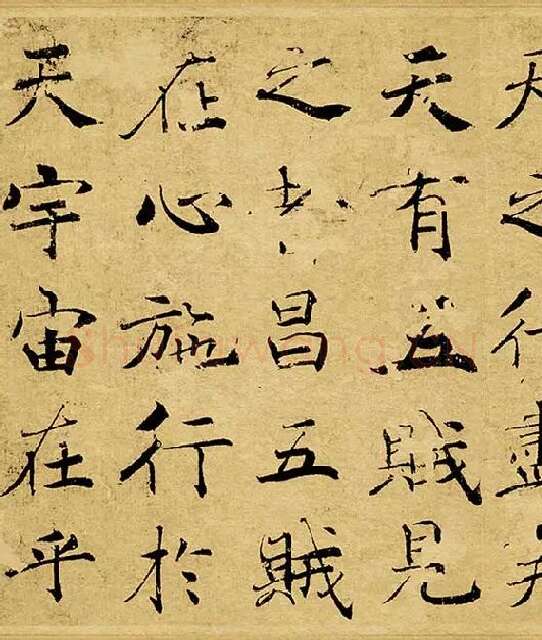 天之行盡
天有五賊見
之者昌五賊
在心施行於
天宇宙在乎